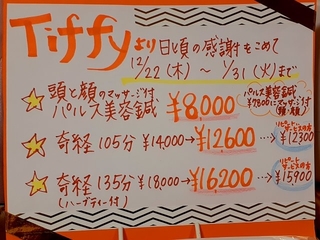 Tiffyより日頃の感謝をこめて
12/22(木)～1/31(火)まで
頭と顔のマッサージ付
パルス美容鍼 ¥8,000
パルス美容鍼
¥7800にマッサージ付
(頭・顔)
奇経 105分 ¥14000→¥12,600…>¥12300
リピートサービスの方
奇経 135分 ¥18000→¥16,200…>¥15900
リピートサービスの方
(ハーブティー付)